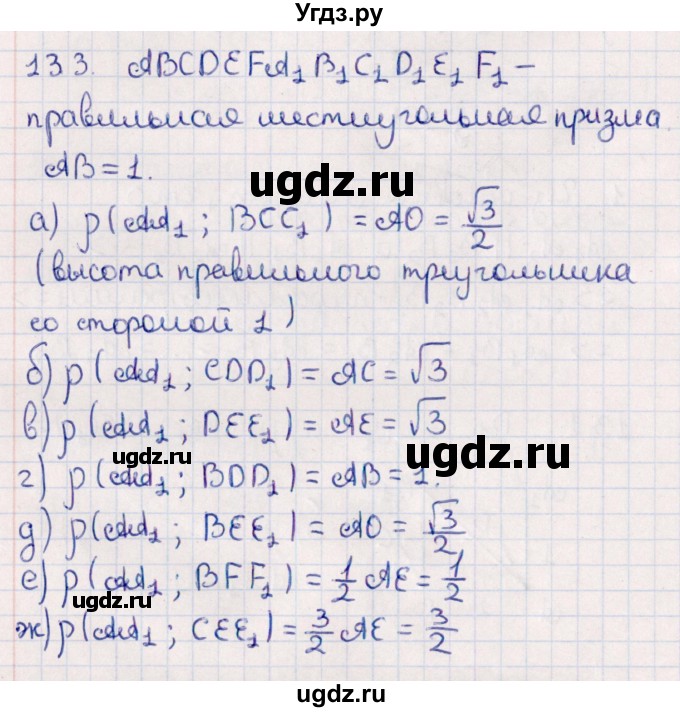 Угдз.ру
133. ABCDEFA₁B₁C₁D₁E₁F₁ –
правильная шестиугольная призма
AB = 1.
ugdz.ru
а) ρ(AA₁; BCC₁) = AO = √3/2
(высота правильного треугольника
со стороной 1)
ugdz.ru
б) ρ(AA₁; CDD₁) = AC = √3
в) ρ(AA₁; DEE₁) = AE = √3
ugdz.ru
г) ρ(AA₁; BDD₁) = AB = 1.
д) ρ(AA₁; BEE₁) = AO = √3/2
ugdz.ru
е) ρ(AA₁; BFF₁) = 1/2 AE = 1/2
ugdz.ru
ж) ρ(AA₁; CEE₁) = 3/2 AE = 3/2
ugdz.ru
ugdz.ru